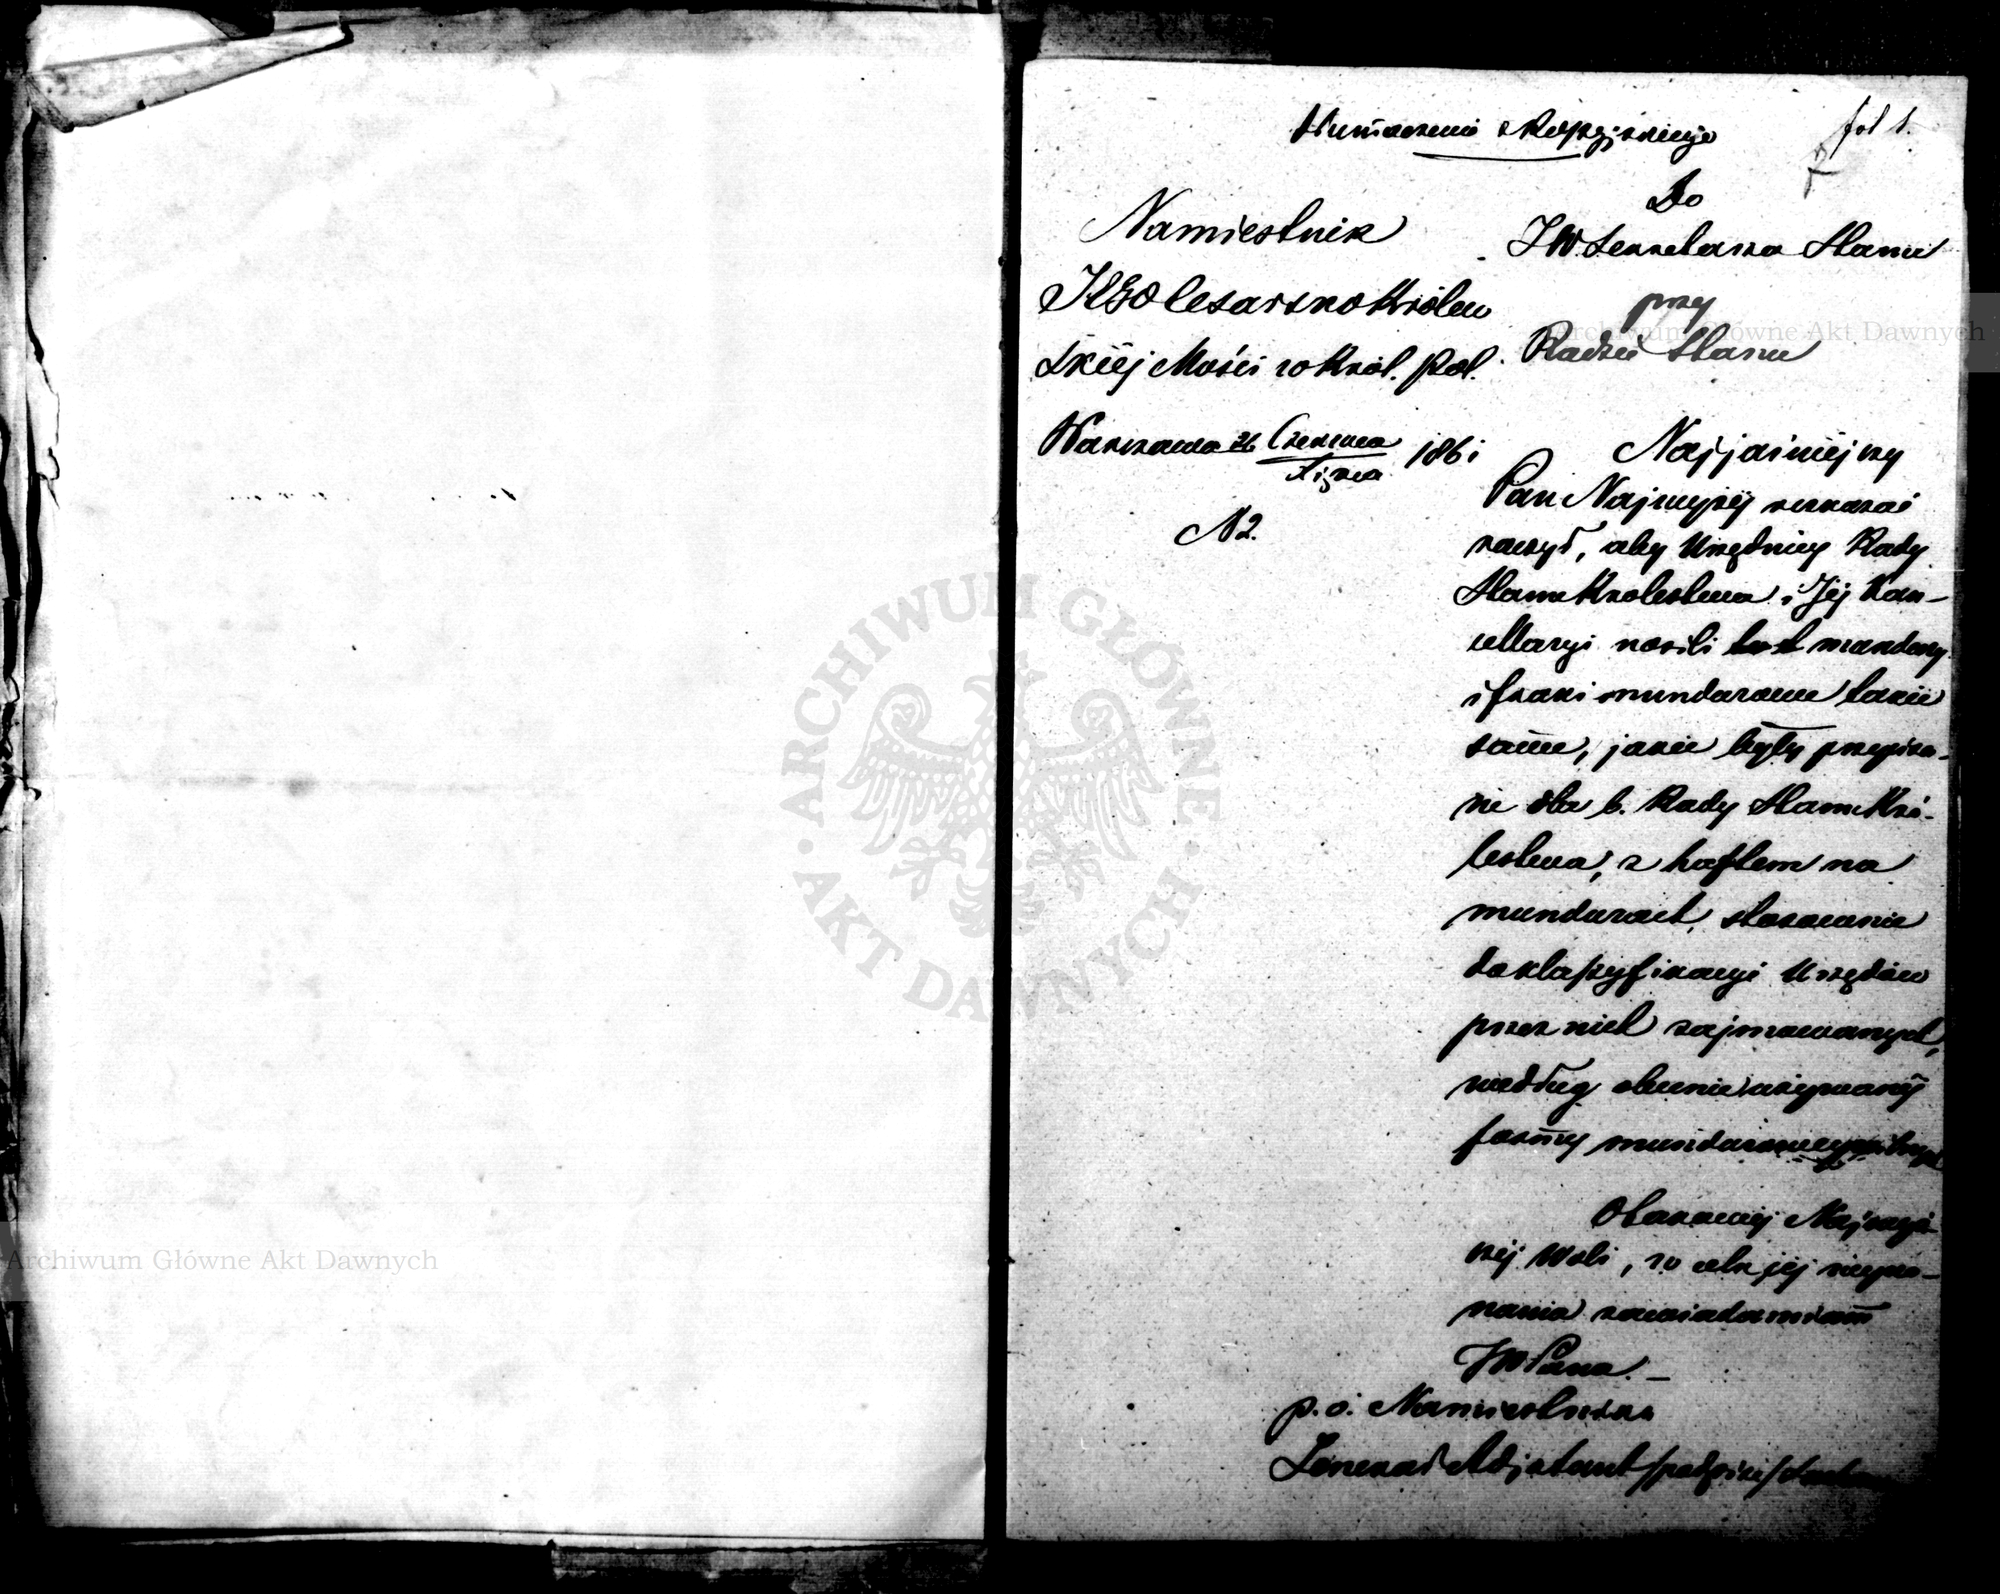 Tłumaczenie z Rossyjskiego
fol 1.
Namiestnik
JEGO Cesarsko Królew
skiéj Mości w Król. Pol.
Warszawa 26 Czerwca 1861
Lipca
N 2.
Do
JW Sekretarza Stanu
przy
Radzie Stanu
Najjaśniéjszy
Pan Najwyżéj rozkazać
raczył, aby Urzędnicy Rady
Stanu Królestwa i Jéj Kan-
cellaryi nosili mundury
i fraki mundurowe takie
same, jakie były przepisa-
ne dla b. Rady Stanu Kró-
lestwa, z haftem na
mundurach, stosownie
do klassyfikacyi Urzędów
przez nich zajmowanych,
według obecnie używanéj
formy mundurów
O takowéj Najwyż-
széj Woli, w celu jéj wyko-
nania zawiadamiam
JW Pana. —
p. o. Namiestnika
Jenerał Adjutant /podpisał/
Archiwum Główne Akt Dawnych
ARCHIWUM GŁÓWNE · AKT DAWNYCH ·
Archiwum Główne Akt Dawnych